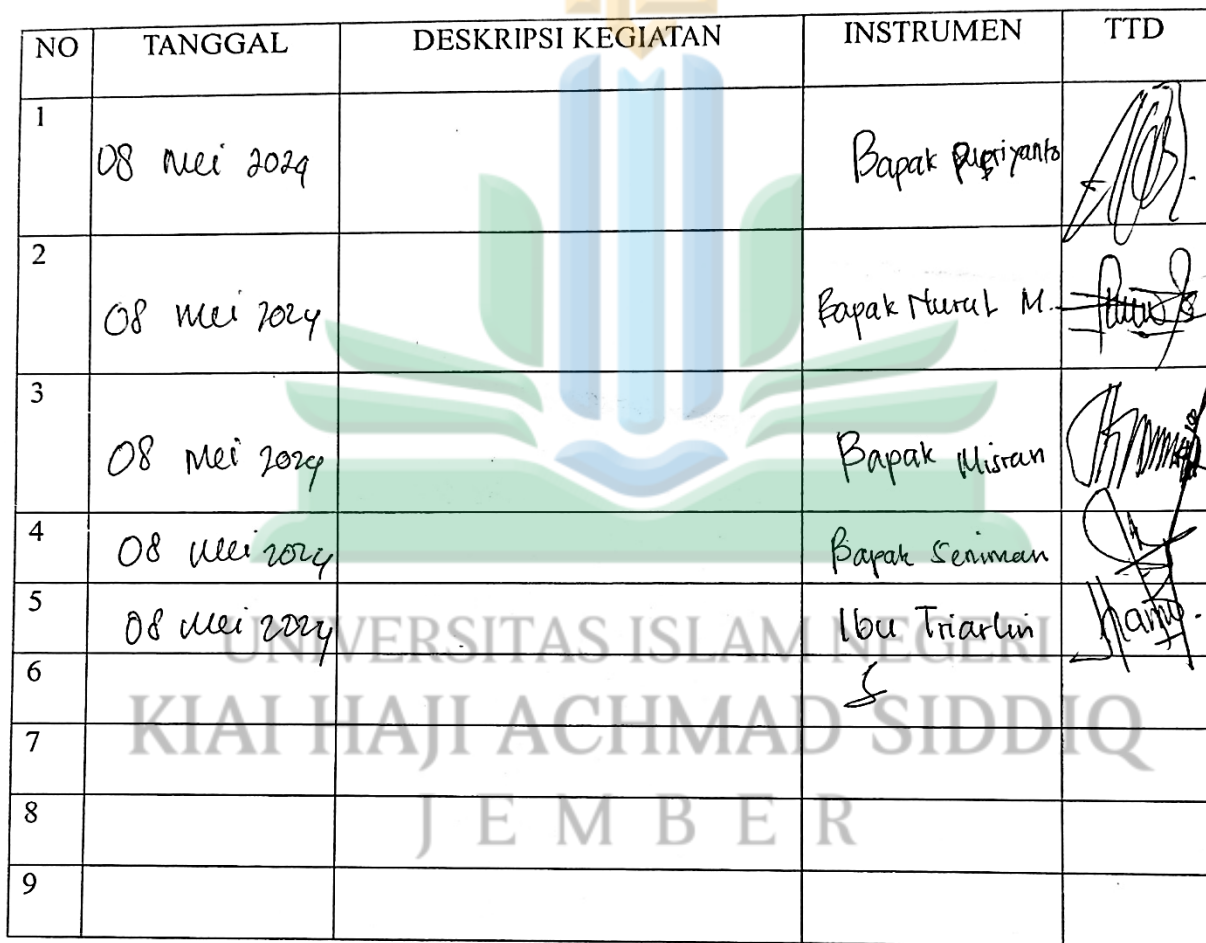 NO TANGGAL DESKRIPSI KEGIATAN INSTRUMEN TTD
1 08 Mei 2024 Bapak
2 08 Mei 2024 Bapak Nurul M.
3 08 Mei 2024 Bapak Misran
4 08 Mei 2024 Bapak Seniman
5 08 Mei 2024 Ibu Triarlin
6
7
8
9
UNIVERSITAS ISLAM NEGERI
KIAI HAJI ACHMAD SIDDIQ
JEMBER